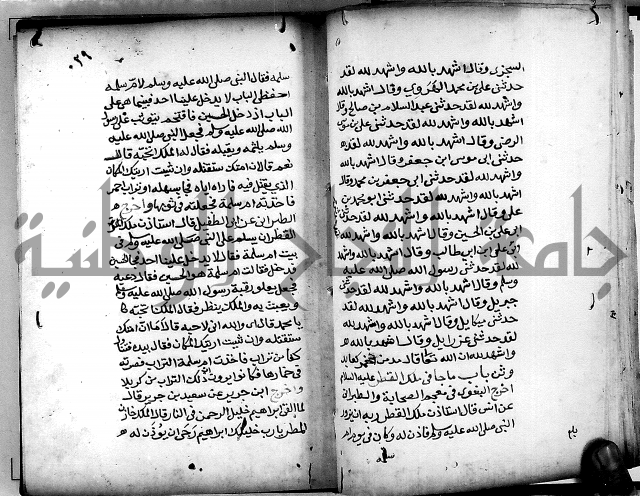 السجزي وقال اشهد بالله واشهد لله لقد
حدثني علي بن محمد الهروي وقال اشهد بالله
واشهد لله لقد حدثني عبد السلام بن صالح وقال
اشهد بالله واشهد لله لقد حدثني علي بن موسى
الرضى وقال اشهد بالله واشهد لله لقد
حدثني ابي موسى بن جعفر وقال اشهد بالله
واشهد لله لقد حدثني ابي جعفر بن محمد وقال
اشهد بالله واشهد لله لقد حدثني ابي محمد بن
علي وقال اشهد بالله واشهد لله لقد حدثني
ابي علي بن الحسين وقال اشهد بالله واشهد لله
ابي علي بن ابي طالب وقال اشهد بالله واشهد
لله لقد حدثني رسول الله صلى الله عليه
وسلم وقال اشهد بالله واشهد لله لقد حدثني
جبريل وقال اشهد بالله واشهد لله لقد
حدثني ميكايل وقال اشهد بالله واشهد لله
لقد حدثني عزرايل وقال اشهد بالله
واشهد لله ان الله تعالى قال مدمن خمر كعابد
وثن باب ما جا في ملك القطر عليه السلام
اخرج البغوي في معجم الصحابة والطبراني
عن انس قال استاذن ملك القطر ربه ان يزور
النبي صلى الله عليه وسلم فاذن له وكان في يوم ام
سلمة
٠٢٩
سلمه فقال النبي صلى الله عليه وسلم لام سلمه
احفظي الباب لا يدخل علينا احد فبينما هي على
الباب اذ دخل الحسين فاقتحم يتوثب على رسول
الله صلى الله عليه وسلم فجعل النبي صلى الله عليه
وسلم يلثمه ويقبله فقال له الملك اتحبه قال
نعم قال ان امتك ستقتله وان شيت اريتك المكان
الذي يقتل فيه فاراه اياه فجا بسهلة او تراب احمر
فاخذته ام سلمة فجعلته في ثوبها واخرج
الطبراني عن ابي الطفيل قال استاذن ملك
القطر ان يسلم على النبي صلى الله عليه وسلم في
بيت ام سلمة فقال لا يدخل علينا احد فجا الحسين
فدخل فقالت ام سلمة هو الحسين فقال دعيه
فجعل يعلو رقبة رسول الله صلى الله عليه وسلم
ويعبث به والملك ينظر فقال الملك تحبه
يا محمد قال اي والله اني لاحبه قال اما ان امتك
ستقتله وان شيت اريتك المكان فقال بيده فتناول
كفا من تراب فاخذت ام سلمة التراب فصرته
في خمارها فكانوا يرون ان ذلك التراب من كربلا
واخرج ابن جرير عن سعيد بن جبير قال
لما القي ابراهيم خليل الرحمن في النار قال الملك خازن
المطر يا رب خليلك ابراهيم رجا ان يؤذن له
جامعة النجاح الوطنية